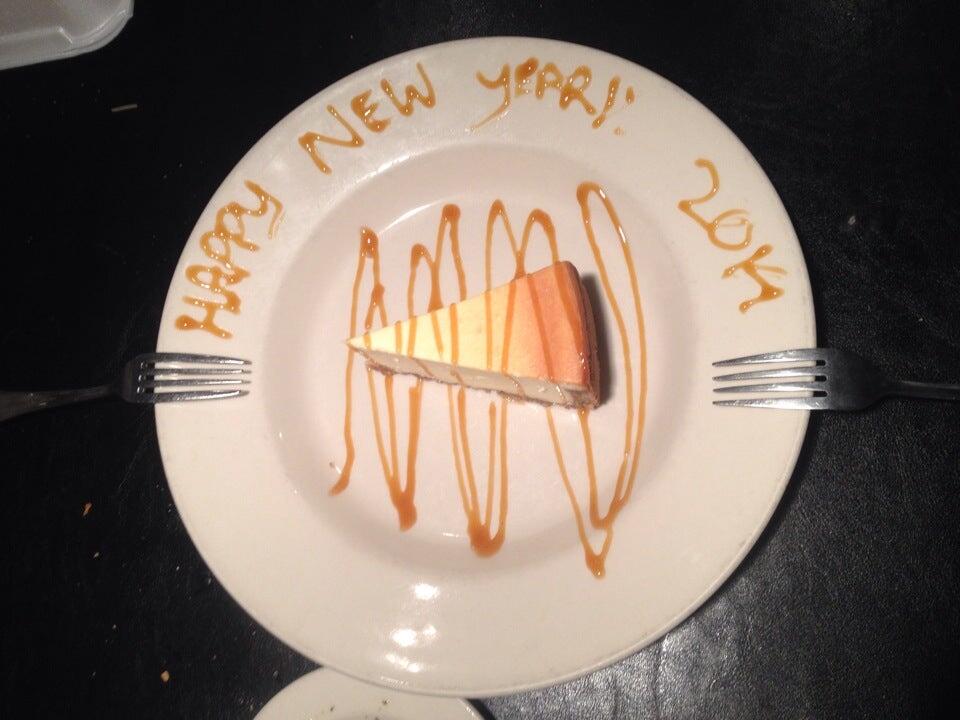 HAPPY NEW YEAR! 2014